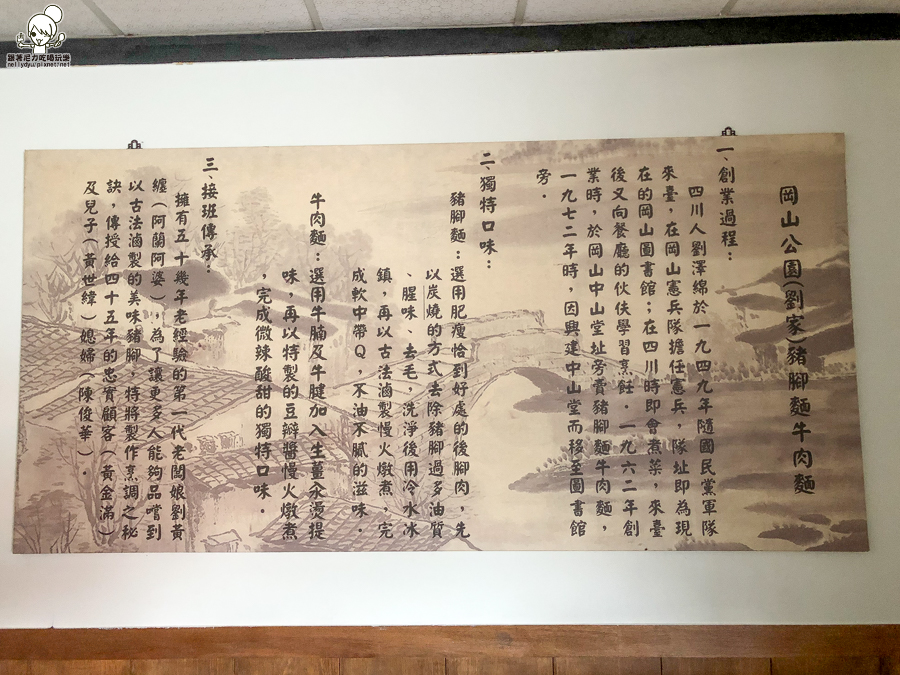 岡山公園(劉家)豬腳麵牛肉麵
一、創業過程：
四川人劉澤綿於一九四九年隨國民黨軍隊
來臺，在岡山憲兵隊擔任憲兵，隊址即為現
在的岡山圖書館；在四川時即會煮菜，來臺
後又向餐廳的伙伕學習烹飪．一九六二年創
業時，於岡山中山堂址旁賣豬腳麵牛肉麵，
一九七二年時，因興建中山堂而移至圖書館
旁．
二、獨特口味：
豬腳麵：選用肥瘦恰到好處的後腳肉，先
以炭燒的方式去除豬腳過多油質
、腥味、去毛，洗淨後用冷水冰
鎮，再以古法滷製慢火燉煮，完
成軟中帶Q，不油不膩的滋味．
牛肉麵：選用牛腩及牛腱加入生薑汆燙提
味，再以特製的豆瓣醬慢火燉煮
，完成微辣酸甜的獨特口味．
三、接班傳承：
擁有五十幾年老經驗的第一代老闆娘劉黃
纏(阿蘭阿婆)，為了讓更多人能夠品嚐到
以古法滷製的美味豬腳，特將製作烹調之秘
訣，傳授給四十五年的忠實顧客(黃金滿)
及兒子(黃世緯)媳婦(陳俊華)．
跟著尼力吃喝玩樂
nellydyu.pixnet.net